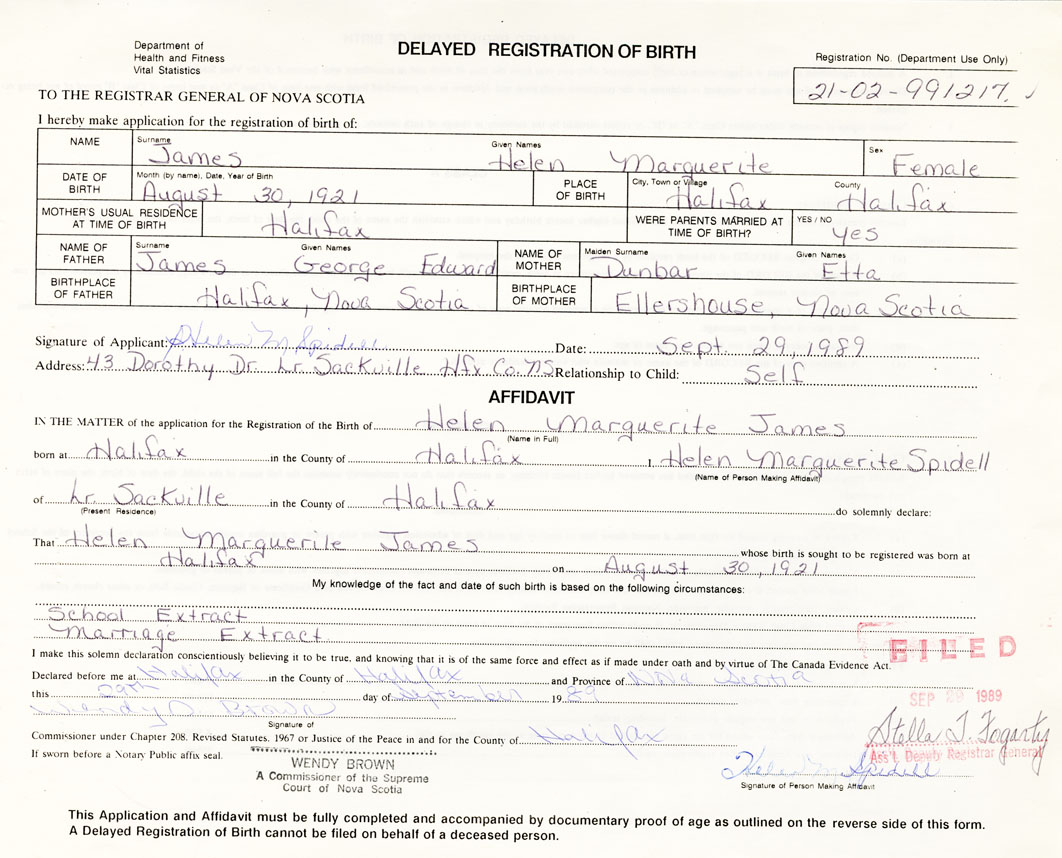 Department of
Health and Fitness
Vital Statistics
DELAYED REGISTRATION OF BIRTH
Registration No. (Department Use Only)
21-02-991217.
TO THE REGISTRAR GENERAL OF NOVA SCOTIA
I hereby make application for the registration of birth of:
NAME Surname James Given Names Helen Marguerite Sex Female
DATE OF BIRTH Month (by name), Date, Year of Birth August 30, 1921 PLACE OF BIRTH City, Town or Village Halifax County Halifax
MOTHER'S USUAL RESIDENCE AT TIME OF BIRTH Halifax WERE PARENTS MARRIED AT TIME OF BIRTH? YES / NO yes
NAME OF FATHER Surname James Given Names George Edward NAME OF MOTHER Maiden Surname Dunbar Given Names Etta
BIRTHPLACE OF FATHER Halifax, Nova Scotia BIRTHPLACE OF MOTHER Ellershouse, Nova Scotia
Signature of Applicant: Helen M Spidell Date: Sept. 29, 1989
Address: 43 Dorothy Dr. Lr. Sackville Hfx Co. NS Relationship to Child: Self
AFFIDAVIT
IN THE MATTER of the application for the Registration of the Birth of Helen Marguerite James
(Name in Full)
born at Halifax in the County of Halifax I, Helen Marguerite Spidell
(Name of Person Making Affidavit)
of Lr. Sackville in the County of Halifax do solemnly declare:
(Present Residence)
That Helen Marguerite James whose birth is sought to be registered was born at
Halifax on August 30, 1921
My knowledge of the fact and date of such birth is based on the following circumstances:
School Extract
Marriage Extract
I make this solemn declaration conscientiously believing it to be true, and knowing that it is of the same force and effect as if made under oath and by virtue of The Canada Evidence Act.
FILED
Declared before me at Halifax in the County of Halifax and Province of Nova Scotia
this 29th day of September 19 89
SEP 29 1989
Wendy D. Brown
Signature of
Commissioner under Chapter 208. Revised Statutes. 1967 or Justice of the Peace in and for the County of Halifax
Stella T. Fogarty
Ass't. Deputy Registrar General
If sworn before a Notary Public affix seal.
WENDY BROWN
A Commissioner of the Supreme
Court of Nova Scotia
Helen M Spidell
Signature of Person Making Affidavit
This Application and Affidavit must be fully completed and accompanied by documentary proof of age as outlined on the reverse side of this form.
A Delayed Registration of Birth cannot be filed on behalf of a deceased person.